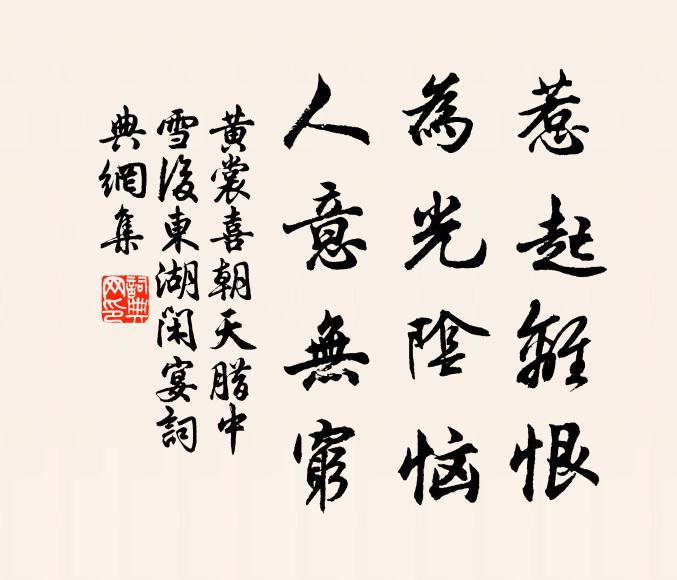 惹起離恨
為光陰恼
人意無窮
黃裳喜朝天腊中
雪後東湖闲宴詞
典網集
詞典
网印